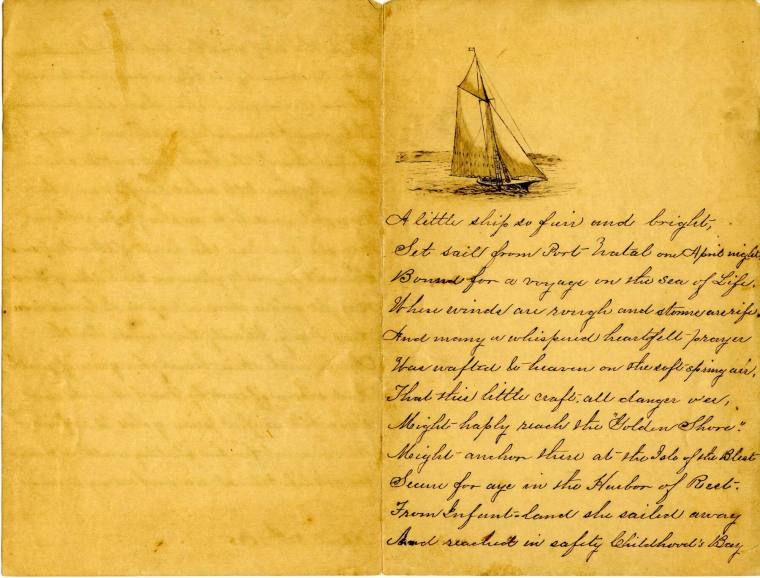 A little ship so fair and bright,
Set sail from Port Natal one April night,
Bound for a voyage on the Sea of Life.
Where winds are rough and storms are rife.
And many a whispered heartfelt prayer
Was wafted to heaven on the soft spring air,
That this little craft, all danger o'er,
Might haply reach the "Golden Shore".
Might anchor there at the Isle of the Blest
Secure for aye in the Harbor of Rest.
From Infant-land she sailed away
And reached in safety Childhood's Bay